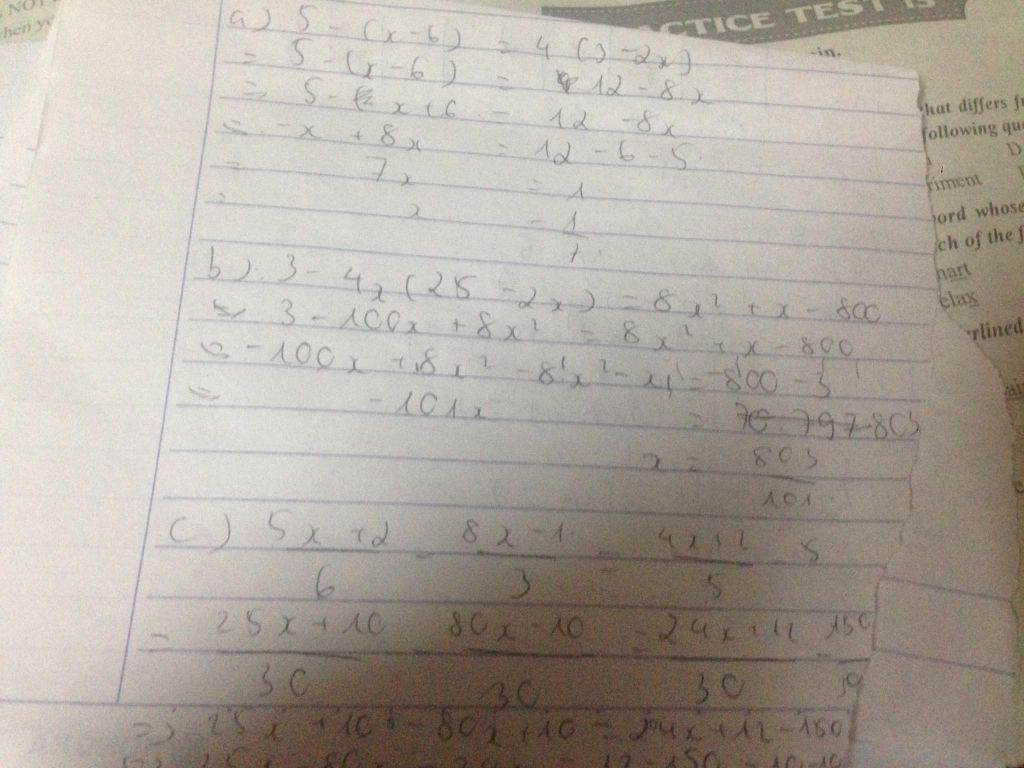 a) 5 - (x-6) = 4 (3-2x)
= 5 - (x-6) = 12 - 8x
= 5 - x + 6 = 12 - 8x
= -x + 8x = 12 - 6 - 5
= 7x = 1
= x = 1/7
b) 3 - 4x (25 - 2x) = 8x² + x - 800
= 3 - 100x + 8x² = 8x² + x - 800
= -100x + 8x² - 8x² - x = -800 - 3
= -101x = 70 797 -803
x = 803/101
c) 5x+2/6 - 8x-1/3 = 4x+2/5 - 5
= 25x+10/30 - 80x-10/30 = 24x+12/30 - 150/30
=> 25x + 10 - 80x + 10 = 24x + 12 - 150
PRACTICE TEST
-in.
hat differs
ollowing
D
riment
ord whose
ch of the
hart
elax
rlined